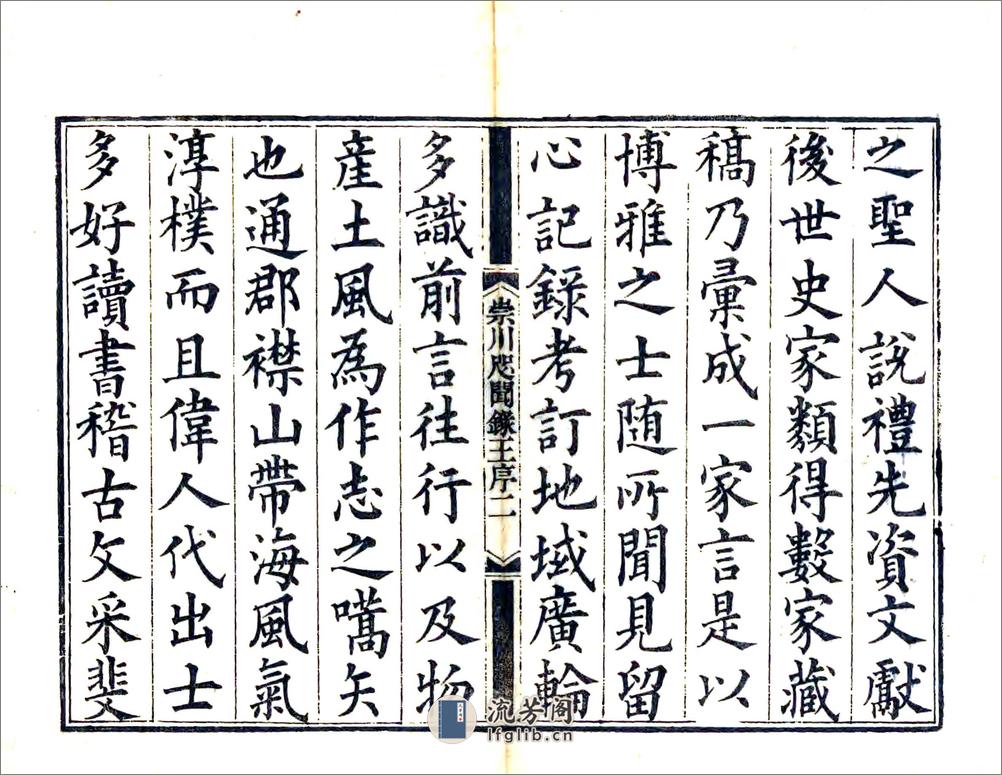 之聖人說禮先資文獻
後世史家類得數家藏
稿乃彙成一家言是以
博雅之士随所聞見留
心記錄考訂地域廣輪
崇川咫聞錄王序二
多識前言往行以及物
產土風為作志之嚆矢
也通郡襟山帶海風氣
淳樸而且偉人代出士
多好讀書稽古文采斐
流芳阁
lfglib.cn